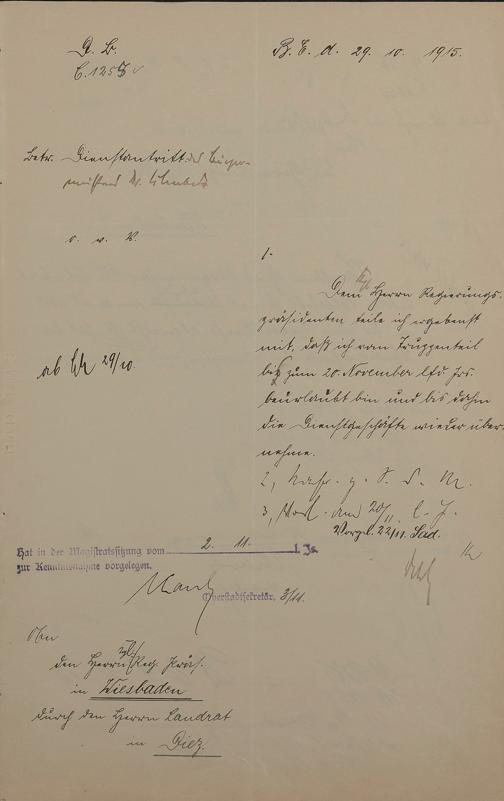 G. B.
C. 1255
B. E. d. 29. 10. 1915.
Betr. Dienstantritt des Bürger-
meisters Dr.
o. v. V.
1.
Dem Kgl. Herrn Regierungs-
präsidenten teile ich ergebenst
mit, daß ich vom Truppenteil
bis zum 20. November lfd. Jrs.
beurlaubt bin und bis dahin
die Dienstgeschäfte wieder über-
nehme.
ab 29/10.
2,
3, Vorl. am 20/11. l. J.
Vorgel. 22/11.
Hat in der Magistratssitzung vom 2. 11. l. Js.
zur Kenntnisnahme vorgelegen.
Oberstadtsekretär. 3/11.
An
den Kgl. Herrn Reg. Präs.
in Wiesbaden
durch den Herrn Landrat
in Diez.